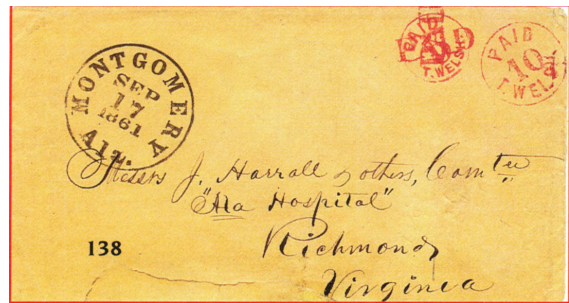 MONTGOMERY
SEP
17
1861
Ala.
PAID
T. WELSH
PAID
10
T. WELS
J. Harrall & others, Comtee
"Ala Hospital"
Richmond
Virginia
138